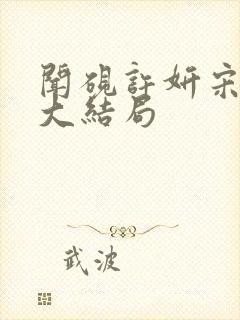 聞硯許妍宋
大結局
武波